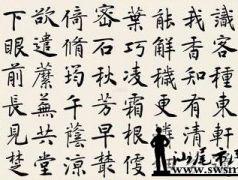 識客種東軒
我香知有清
能解穢更憐
葉巧凌霜根便
密石秋芳早叢
倚脩筠午蔭涼
欲遣蘪蕪共堂
下眼前長見楚
www.swsm